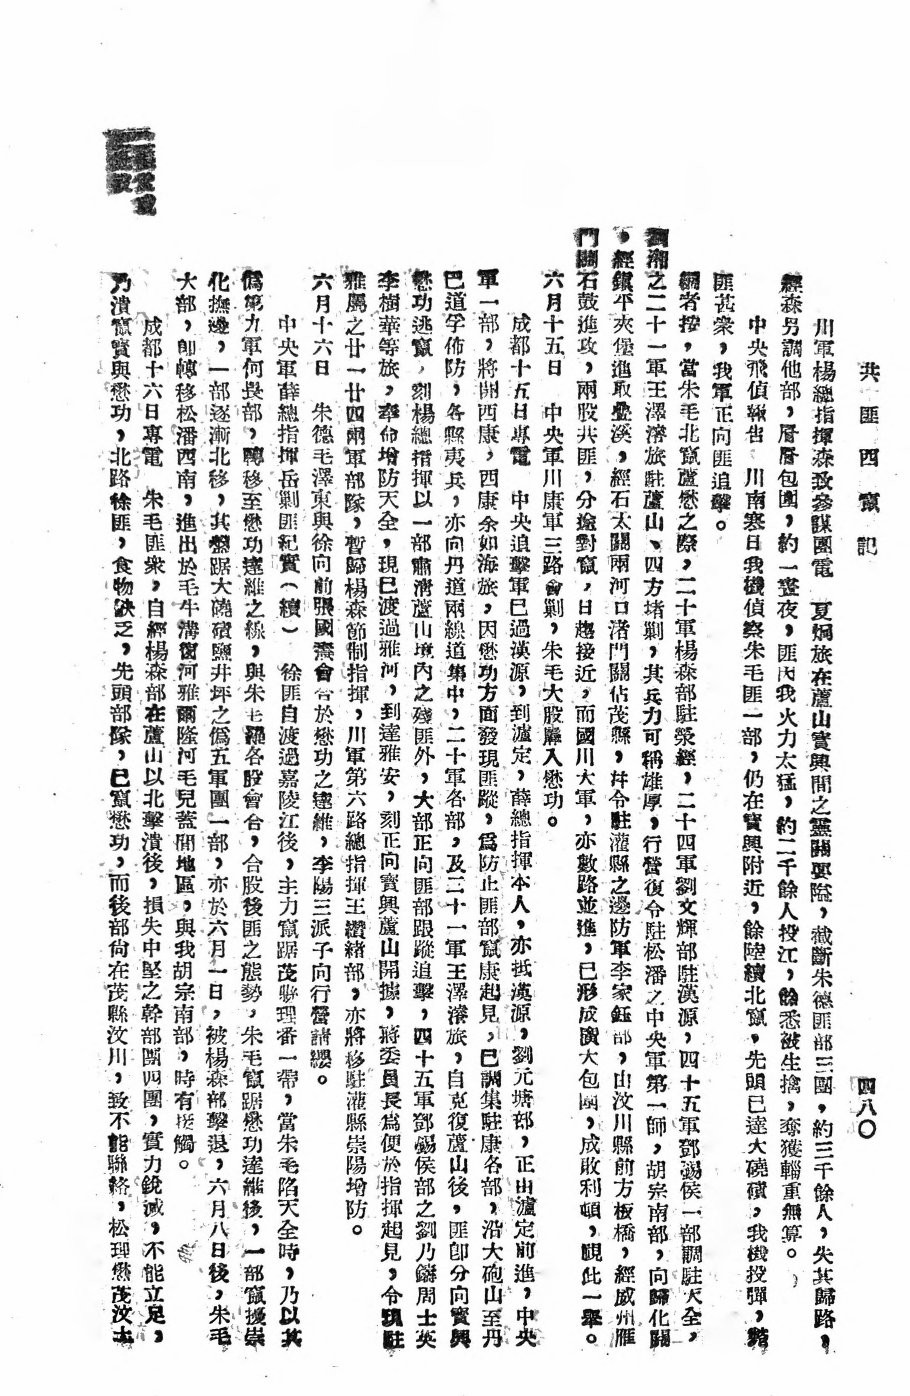 共匪西竄記
四八〇
川軍楊總指揮森致參謀團電　夏炯旅在蘆山寶興間之靈關要隘，截斷朱德匪部三團，約三千餘人，失其歸路，
經森另調他部，層層包圍，約一晝夜，匪因我火力太猛，約二千餘人投江，餘悉被生擒，奪獲輜重無算。
中央飛偵報告　川南寒日我機偵察朱毛匪一部，仍在寶興附近，餘陸續北竄，先頭已達大磽磧，我機投彈，斃
匪甚衆，我軍正向匪追擊。
編者按，當朱毛北竄蘆懋之際，二十軍楊森部駐滎經，二十四軍劉文輝部駐漢源，四十五軍鄧錫侯一部調駐天全，
劉湘之二十一軍王澤濬旅駐蘆山、四方堵剿，其兵力可稱雄厚，行營復令駐松潘之中央軍第一師，胡宗南部，向歸化關
，經鎮平夾堡進取疊溪，經石太關兩河口渚門關佔茂縣，幷令駐灌縣之邊防軍李家鈺部，由汶川縣前方板橋，經威州雁
門關石鼓進攻，兩股共匪，分途對竄，日趨接近，而國川大軍，亦數路並進，已形成廣大包圍，成敗利頓，覩此一舉。
六月十五日　中央軍川康軍三路會剿，朱毛大股竄入懋功。
成都十五日專電　中央追擊軍已過漢源，到瀘定，薛總指揮本人，亦抵漢源，劉元塘部，正由瀘定前進，中央
軍一部，將開西康，西康余如海旅，因懋功方面發現匪蹤，爲防止匪部竄康起見，已調集駐康各部，沿大砲山至丹
巴道孚佈防，各縣夷兵，亦向丹道兩線集中，二十軍各部，及二十一軍王澤濬旅，自克復蘆山後，匪卽分向寶興
懋功逃竄，刻楊總指揮以一部肅清蘆山境內之殘匪外，大部正向匪部跟蹤追擊，四十五軍鄧錫侯部之劉乃鑄周士英
李樹華等旅，奉命增防天全，現已渡過雅河，到達雅安，刻正向寶興蘆山開據，蔣委員長爲便於指揮起見，令現駐
雅屬之廿一廿四兩軍部隊，暫歸楊森節制指揮，川軍第六路總指揮王纘緒部，亦將移駐灌縣崇陽增防。
六月十六日　朱德毛澤東與徐向前張國燾會合於懋功之達維，李陽三派子向行營請纓。
中央軍薛總指揮岳剿匪紀實（續）　徐匪自渡過嘉陵江後，主力竄踞茂縣理番一帶，當朱毛陷天全時，乃以其
僞第九軍何畏部，轉移至懋功達維之線，與朱毛羅各股會合，合股後匪之態勢，朱毛竄踞懋功達維後，一部竄擾崇
化撫邊，一部逐漸北移，其盤踞大磽磧鹽井坪之僞五軍團一部，亦於六月一日，被楊森部擊退，六月八日後，朱毛
大部，卽轉移松潘西南，進出於毛牛溝窗河雅爾隆河毛兒蓋開地區，與我胡宗南部，時有接觸。
成都十六日專電　朱毛匪衆，自經楊森部在蘆山以北擊潰後，損失中堅之幹部團四團，實力銳減，不能立足，
乃潰竄寶與懋功，北路徐匪，食物缺乏，先頭部隊，已竄懋功，而後部尙在茂縣汶川，致不能聯絡，松理懋茂汶土